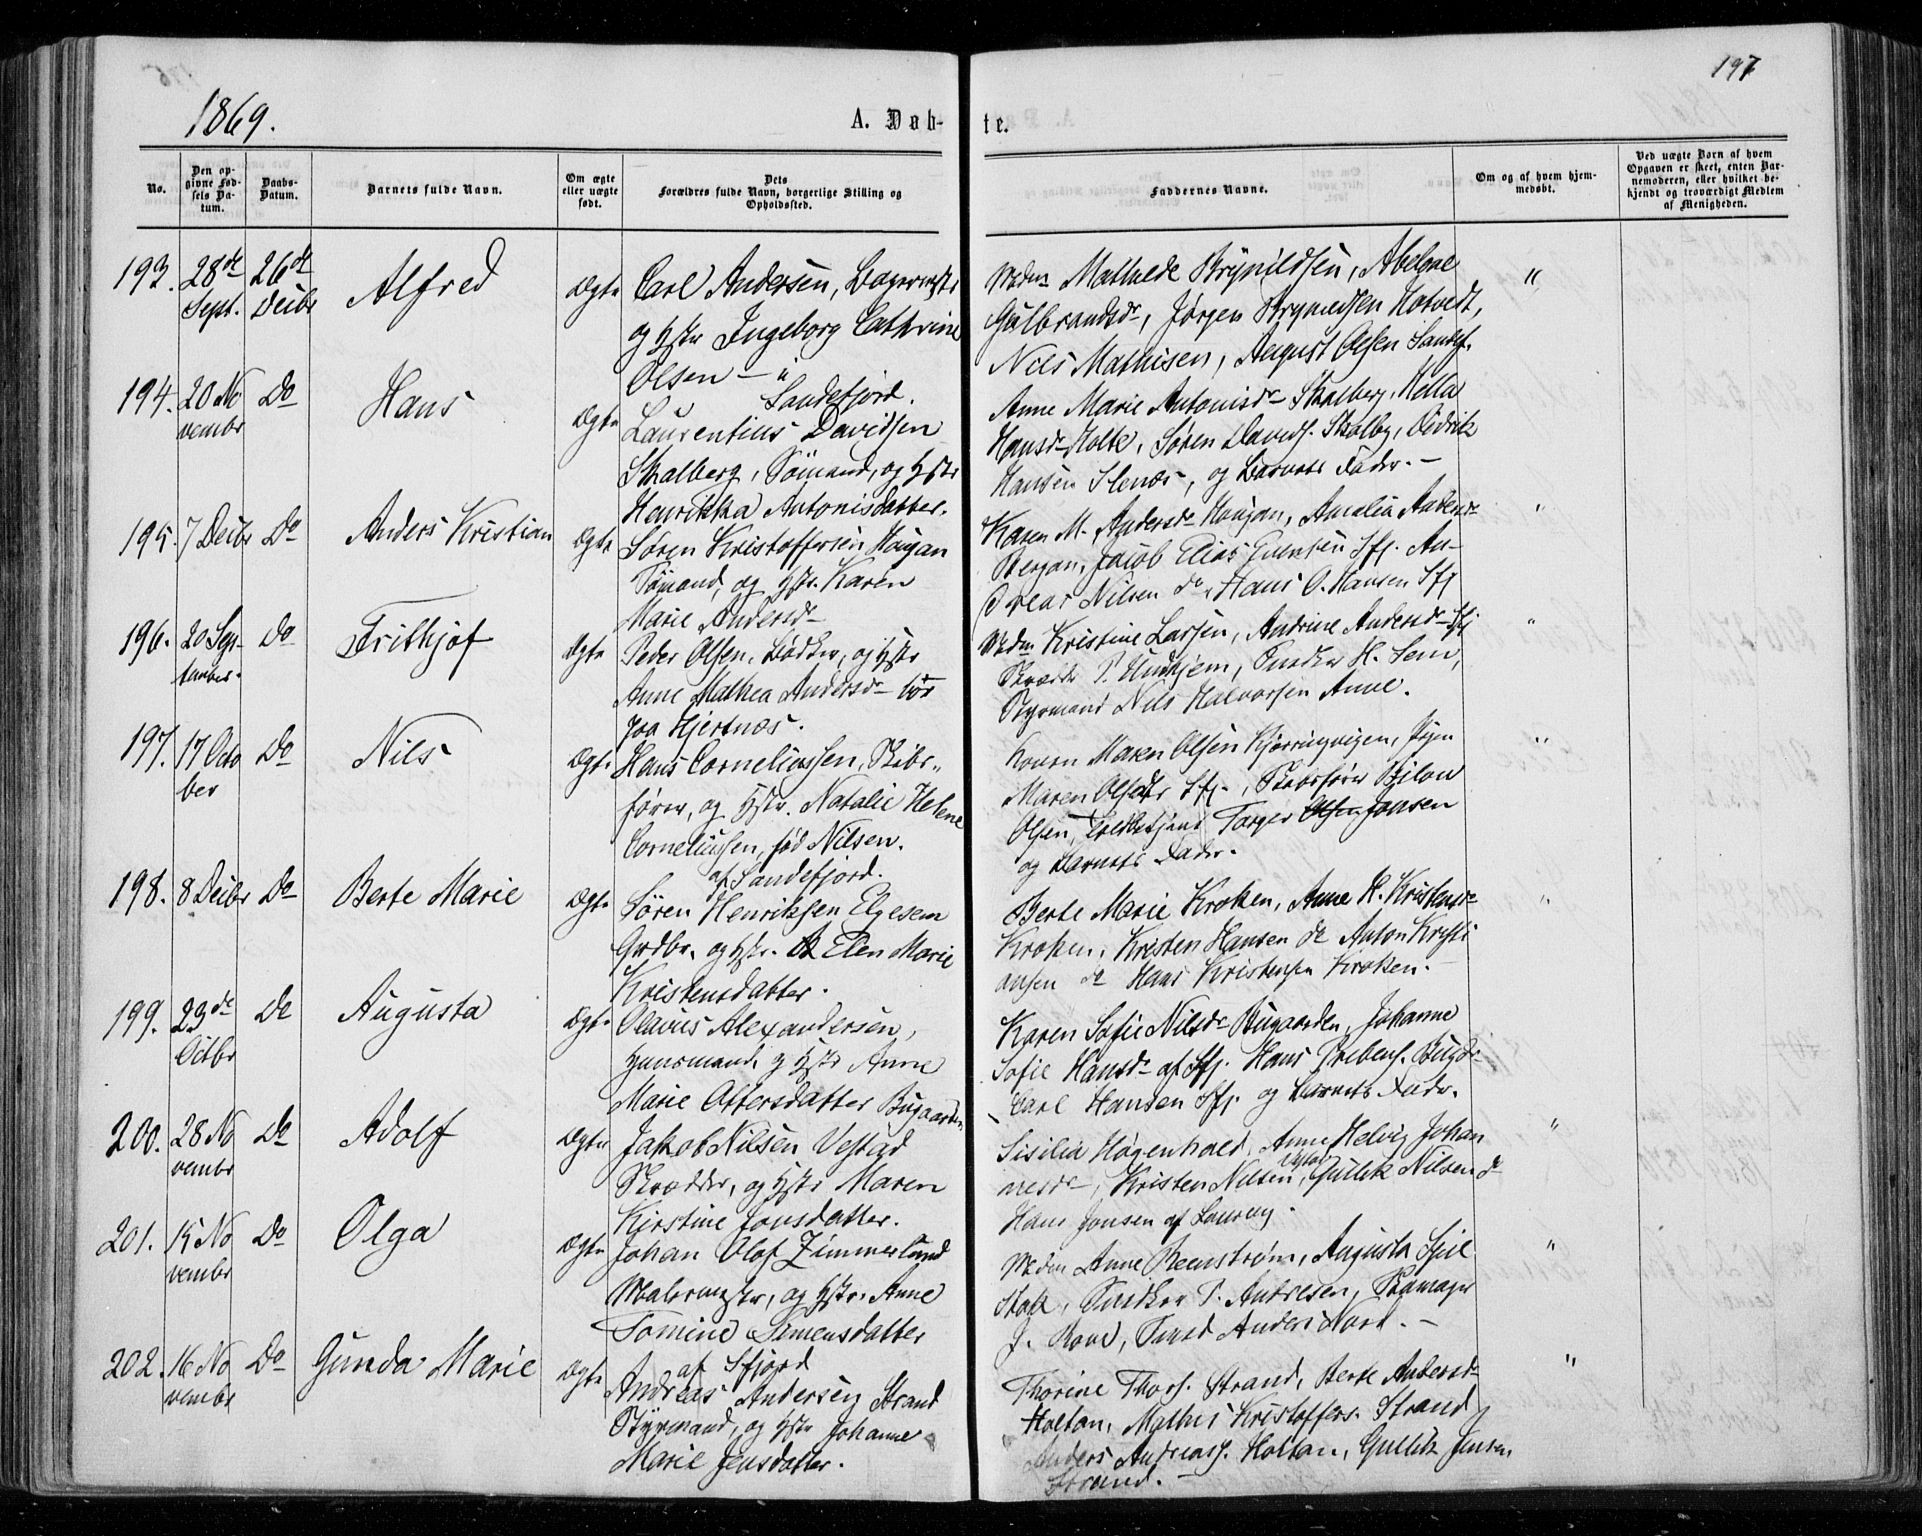 197
1869.
A. Døb-
te.
No.
Den op-
givne Fød-
sels Da-
tum.
Daabs-
Datum.
Barnets fulde Navn.
Om ægte
eller uægte
født.
Dets
Forældres fulde Navn, borgerlige Stilling og
Opholdssted.
Faddernes Navne.
Om og af hvem hjem-
medøbt.
Ved uægte Børn af hvem
Opgaven er skeet, enten Bar-
nemoderen, eller hvilket be-
kjendt og troværdigt Medlem
af Menigheden.
193. 28de Sept. 26de Decbr Alfred Ægte
Carl Andersen,
og Hstr Ingeborg Cathrine
Olsen — a
Sandefjord.
Mdm Mathilde Brynildsen, Abelone
Gulbrandsdr, Jørgen Brynildsen Hotvedt,
Nils Mathisen, August Olsen Sandef.
"
194. 20 No
vembr Do Hans Ægte
Laurentius Davidsen
Skalberg, Sømand, og Hstr
Henrikka Antonisdatter.
Anne Marie Antonisdr Skalberg, Hella
Hansdr Holte, Søren Davids. Skolby, Didrik
Hansen Stenæs, og Barnets Fader. —
195. 7 Decbr Do Anders Kristian Ægte
Søren Kristoffersen Haugan
Sømand, og Hstr. Karen
Marie Andersdr
Karen M. Andersdr Haugan, Amalia Andersdr
Bergan, Jacob Elias Evensen Sfj. An-
dreas Nilsen do, Hans O. Hansen Sfj
"
196. 20 Sep-
tember. Do Frithjof Ægte
Peder Olsen, Bødker, og Hstr
Anne Mathea Andersdr bor
paa Hjertnæs.
Mdm Kristine Larsen, Andrine Andersdr Sfj
Skrædr P. Undhjem, Snedker H. Sem,
Styrmand Nils Halvorsen Anne.
"
197. 17 Octo
ber Do Nils Ægte
Hans Corneliussen, Skibs-
fører, og Hstr. Natalie Helene
Corneliussen, født Nilsen.
af Sandefjord.
Konen Maren Olsen Kjærringvigen, Pigen
Maren Olsdtr Sfj., Skibsfører
Olsen, Toldbetjent Torger Olsen Jonsen
og Barnets Fader.
"
198. 8 Decbr Do Berte Marie Ægte
Søren Henriksen Elgesem
Grdbr. og Hstr. Elen Marie
Kristensdatter.
Berte Marie Kroken, Anne H. Kristensdr
Kroken, Kristen Hansen do Anton Kristi
ansen do Hans Kristensen Kroken. —
"
199. 23de
Octbr Do Augusta Ægte
Olavus Alexandersen,
Huusmand, og Hstr Anne
Marie Ottersdatter Bugaarden
Karen Sofie Nilsdr Bugaarden, Johanne
Sofie Hansdr af Sfj. Hans Prebens. Bugdr
Carl Hansen Sfj. og Barnets Fader.
200. 28 No
vembr Do Adolf Ægte
Jakob Nilsen Vestad
Skrædder, og Hstr Maren
Kirstine Jonsdatter.
Sisilia Høgenhald, Anne Helvig Johan
nesdr, Kristen Nilsen Vestad, Gullik Nilsen do
Hans Jonsen af Laurvig.
"
201. 15 No
vembr Do Olga Ægte
Johan Olof Zimmerlund
Malermester, og Hstr. Anne
Tomine Simensdatter
af Sfjord
Mdm Anne Reenstrøm, Augusta
Snedker P. Andresen, Skomager
J. Rove, Svend Anders Nord. —
"
202. 16 No
vembr Do Gunda Marie Ægte
Andreas Andersen Strand
Styrmand, og Hstr Johanne
Marie Jensdatter.
Thorine Thors. Strand, Berte Andersdr
Holtan, Mathis Kristoffers. Strand,
Anders Andreass. Holtan, Gullik Jensen
Strand. —
"